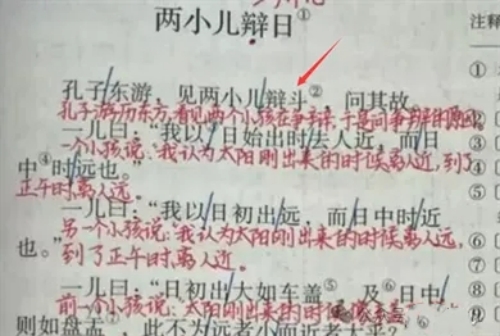 两小儿辩日①
注释
孔子/东游,见两小儿/辩斗②,问其故。
孔子游历东方,看见两个小孩在争辩,于是问争辩的原因。
一儿曰:“我以/日始出时/去人近,而日
一个小孩说:“我认为太阳刚出来的时候离人近,到了
中④时/远也。”
正午时,离人远。
一儿曰:“我以/日初出/远,而/日中时/近
另一个小孩说:“我认为太阳刚出来的时候离人远,
也。”
到了正午时,离人近。
一儿曰:“日初出/大如车盖⑤,及⑥日中/
前一个小孩说:“太阳刚出来的时候像车盖
则如盘盂,此不为远者小而近者大
①
②
③
④
⑤
⑥
⑦
⑧
⑨